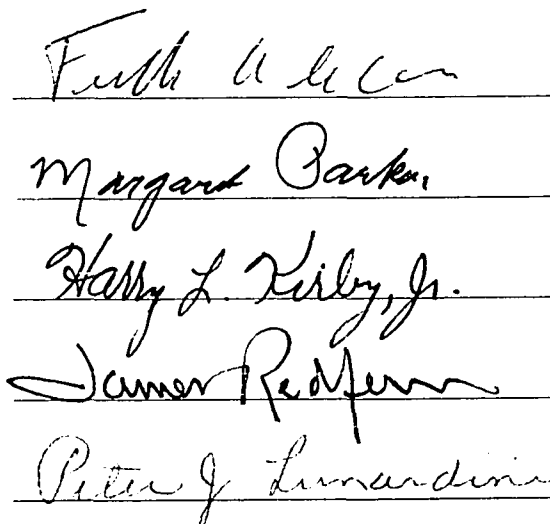 Margaret Parker
Harry L. Kirby, Jr.
James Redfern
Peter J Lunardini